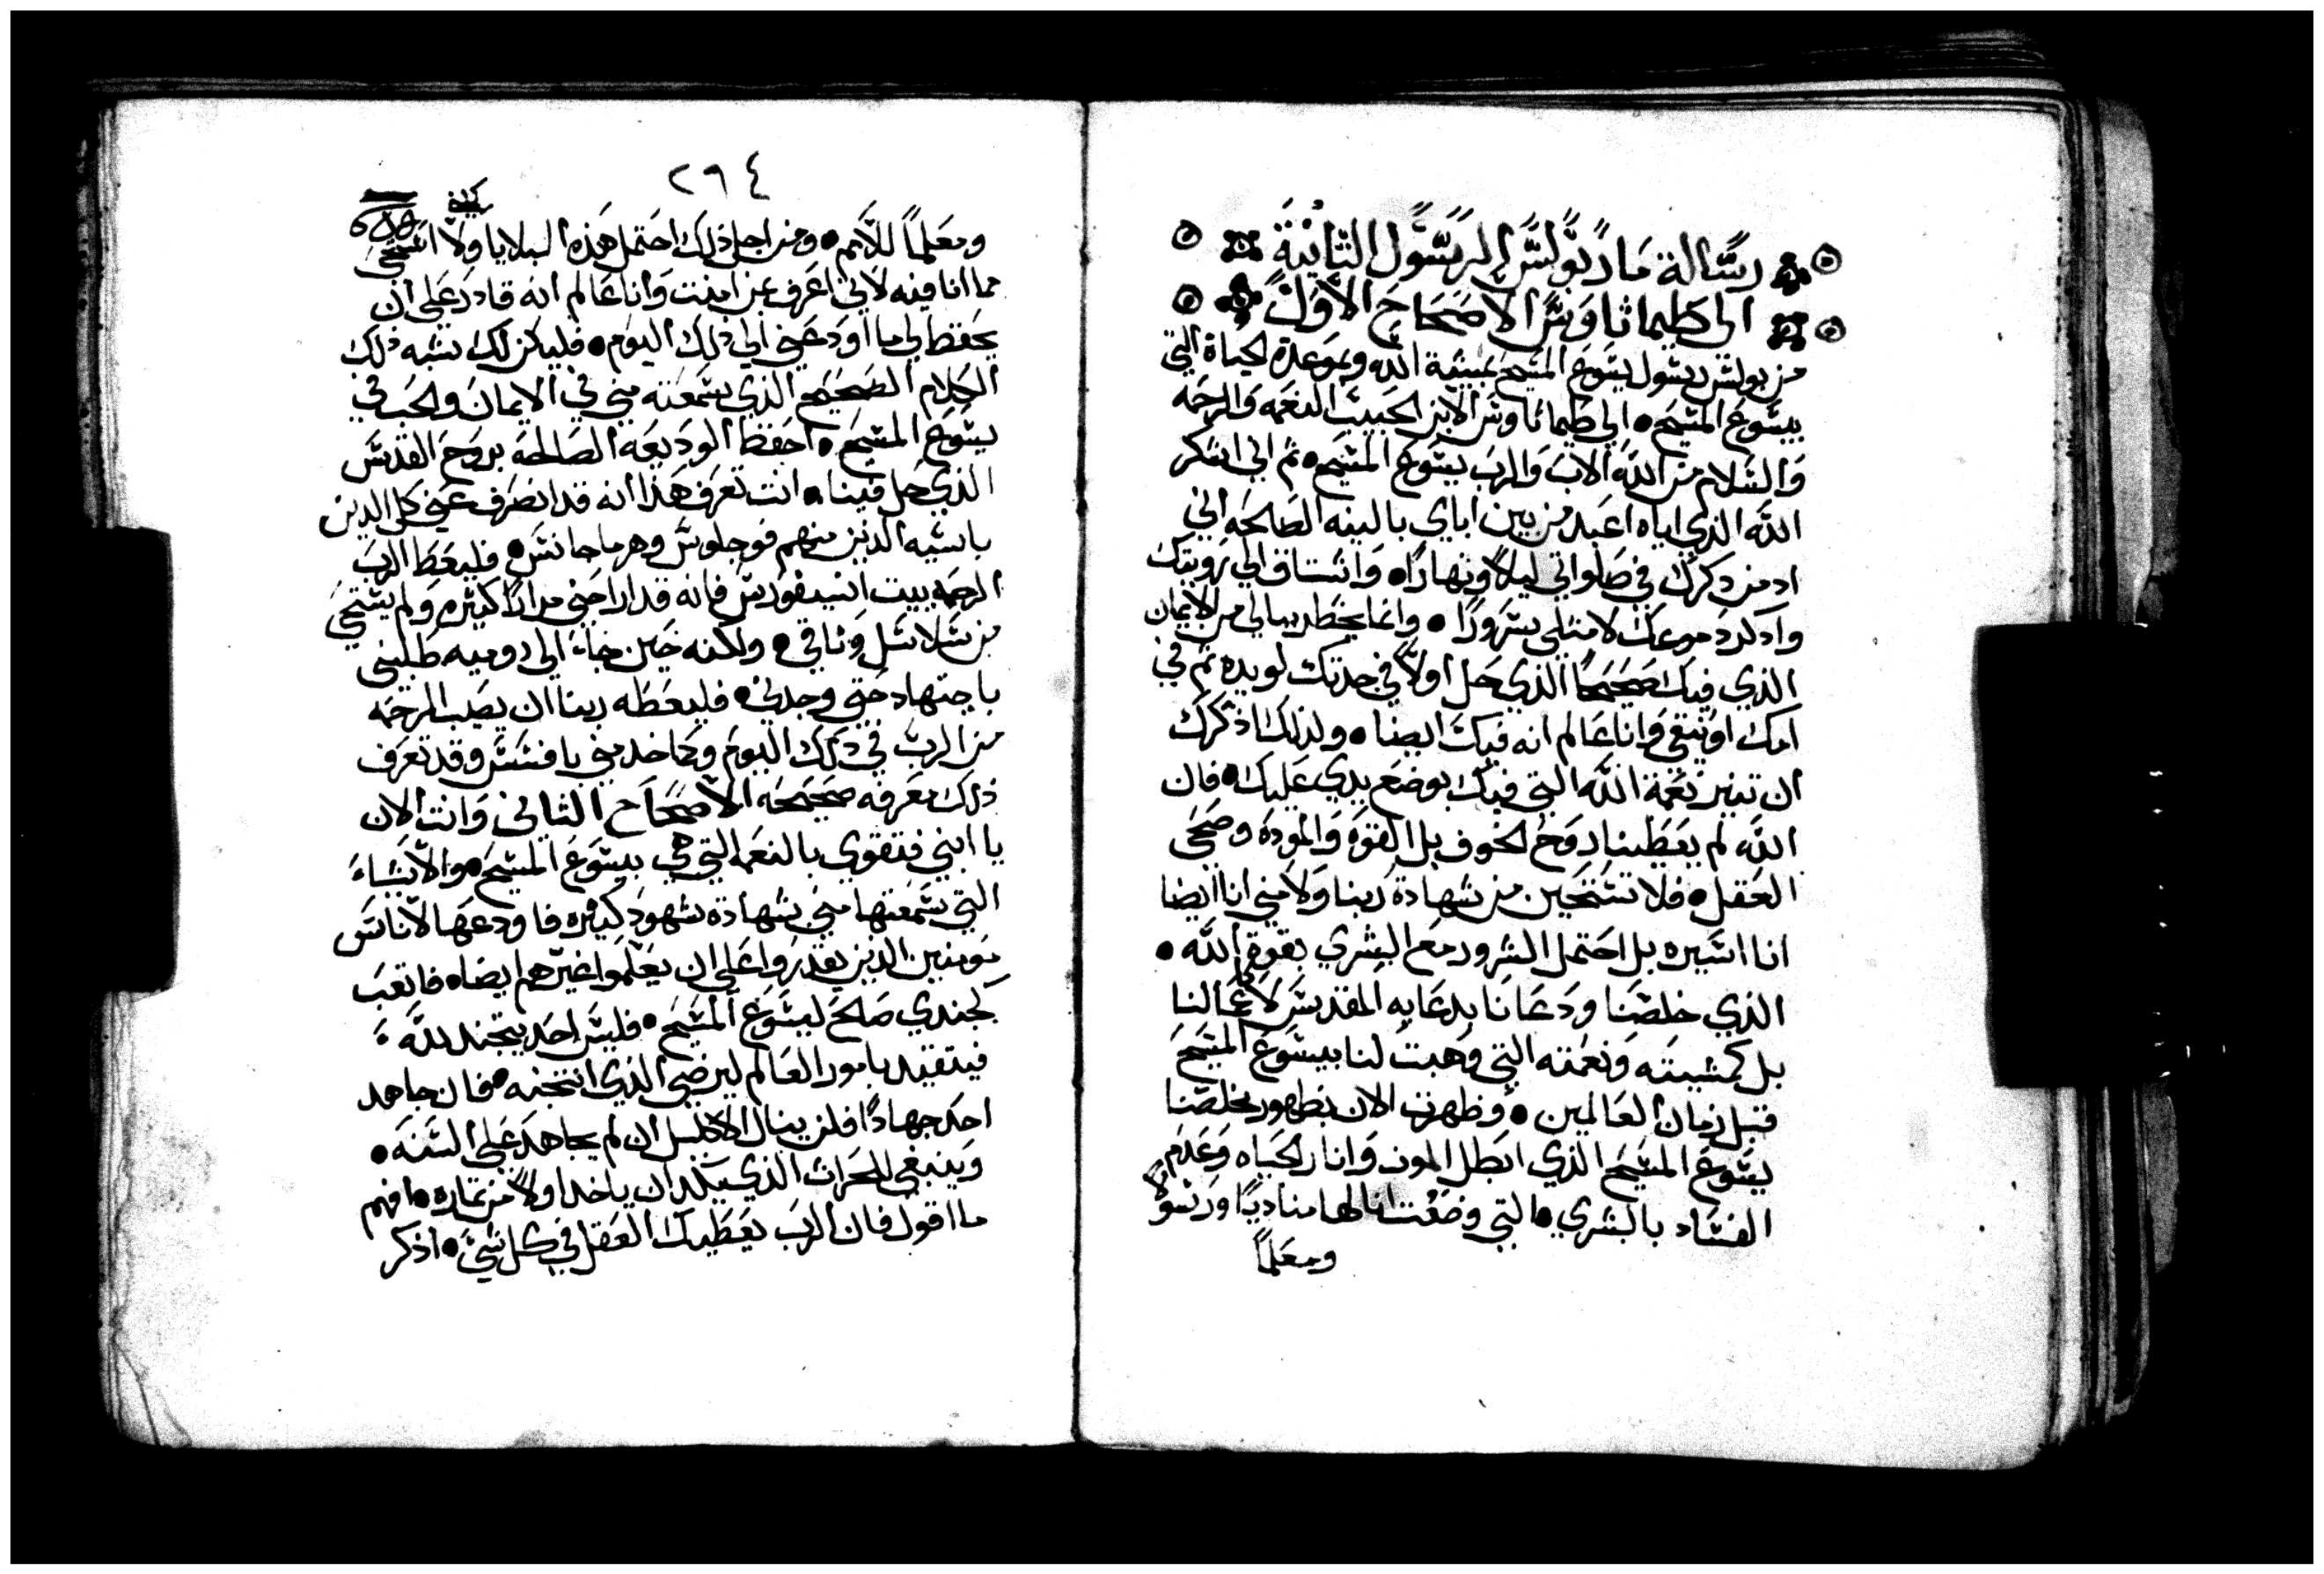 رسالة مار بولس الرسول الثانية
الى طيماثاوس الاصحاح الاول
من بولس رسول يسوع المسيح بمشية الله وبموعدة الحياة التي
بيسوع المسيح • الي طيماثاوس الابن الحبيب النعمه والرحمه
والسلام من الله الاب والرب يسوع المسيح • ثم اني اشكر
الله الذي اياه اعبد من بين اباي بالنيه الصالحه اني
ادمن ذكرك في صلواتي ليلاً ونهارًا • واشتاق الي رويتك
واذكر دموعك لامتلي سرورًا • وانما يخطر ببالي من الايمان
الذي فيك صحيحًا الذي حل اولاً في جدتك لويده ثم في
امك اونيقي وانا عالم انه فيك ايضا • ولذلك اذكرك
ان تنير نعمة الله التي فيك بوضع يدي عليك • فان
الله لم يعطينا روح الخوف بل القوه والموده وصحى
العقل • فلا تستحين من شهادة ربنا ولا مني انا ايضا
انا اسيره بل احتمل الشرور مع البشري بقوة الله •
الذي خلصنا ودعانا بدعايه المقدس لا كاعمالنا
بل كمشيته ونعمته التي وهبت لنا بيسوع المسيح
قبل زمان العالمين • وظهرت الان بظهور مخلصنا
يسوع المسيح الذي ابطل الموت وانار الحياه وعدم
الفساد بالبشري • التي وضعت انا لها مناديًا ورسولاً
ومعلمًا
٢٩٤
ومعلمًا للامم • ومن اجل ذلك احتمل هذه البلايا ولا استحي
مما انا فيه لاني اعرف بمن امنت وانا عالم انه قادر علي ان
يحفظ لي ما اودعني الي ذلك اليوم • فليكن لك شبه ذلك
الكلام الصحيح الذي سمعته مني في الايمان والحب في
يسوع المسيح • احفظ الوديعه الصالحه بروح القدس
الذي حل فينا • انت تعرف هذا انه قد انصرف عني كل الدين
باسيه الدين منهم فوجلوس وهرماجانس • فليعط الرب
الرحمه بيت انسيفورس فانه قد اراحني مرارًا كثيره ولم يستحي
من سلاسل وثاقي • ولكنه حين جاء الي روميه طلبني
باجتهاد حتي وجدني • فليعطه ربنا ان يصب الرحمه
من الرب في ذلك اليوم وكما خدمني بافسس وقد تعرف
ذلك معرفه صحيحه الاصحاح الثاني وانت الان
يا ابني فتقوي بالنعمه التي هي بيسوع المسيح • والاشياء
التي سمعتها مني بشهادة شهود كثيره فاودعها لاناس
مومنين الدين يقدروا علي ان يعلموا غيرهم ايضا • فاتعب
كجندي صالح ليسوع المسيح • فليس احد يتجند لله
فيتقيد بامور العالم ليرضي الذي انتخبه • فان جاهد
احد جهادًا فلن ينال الاكليل ان لم يجاهد علي السنه •
وينبغي للحراث الذي يكد ان ياخد اولاً من ثماره • افهم
ما اقول فان الرب يعطيك العقل في كل شي • اذكر